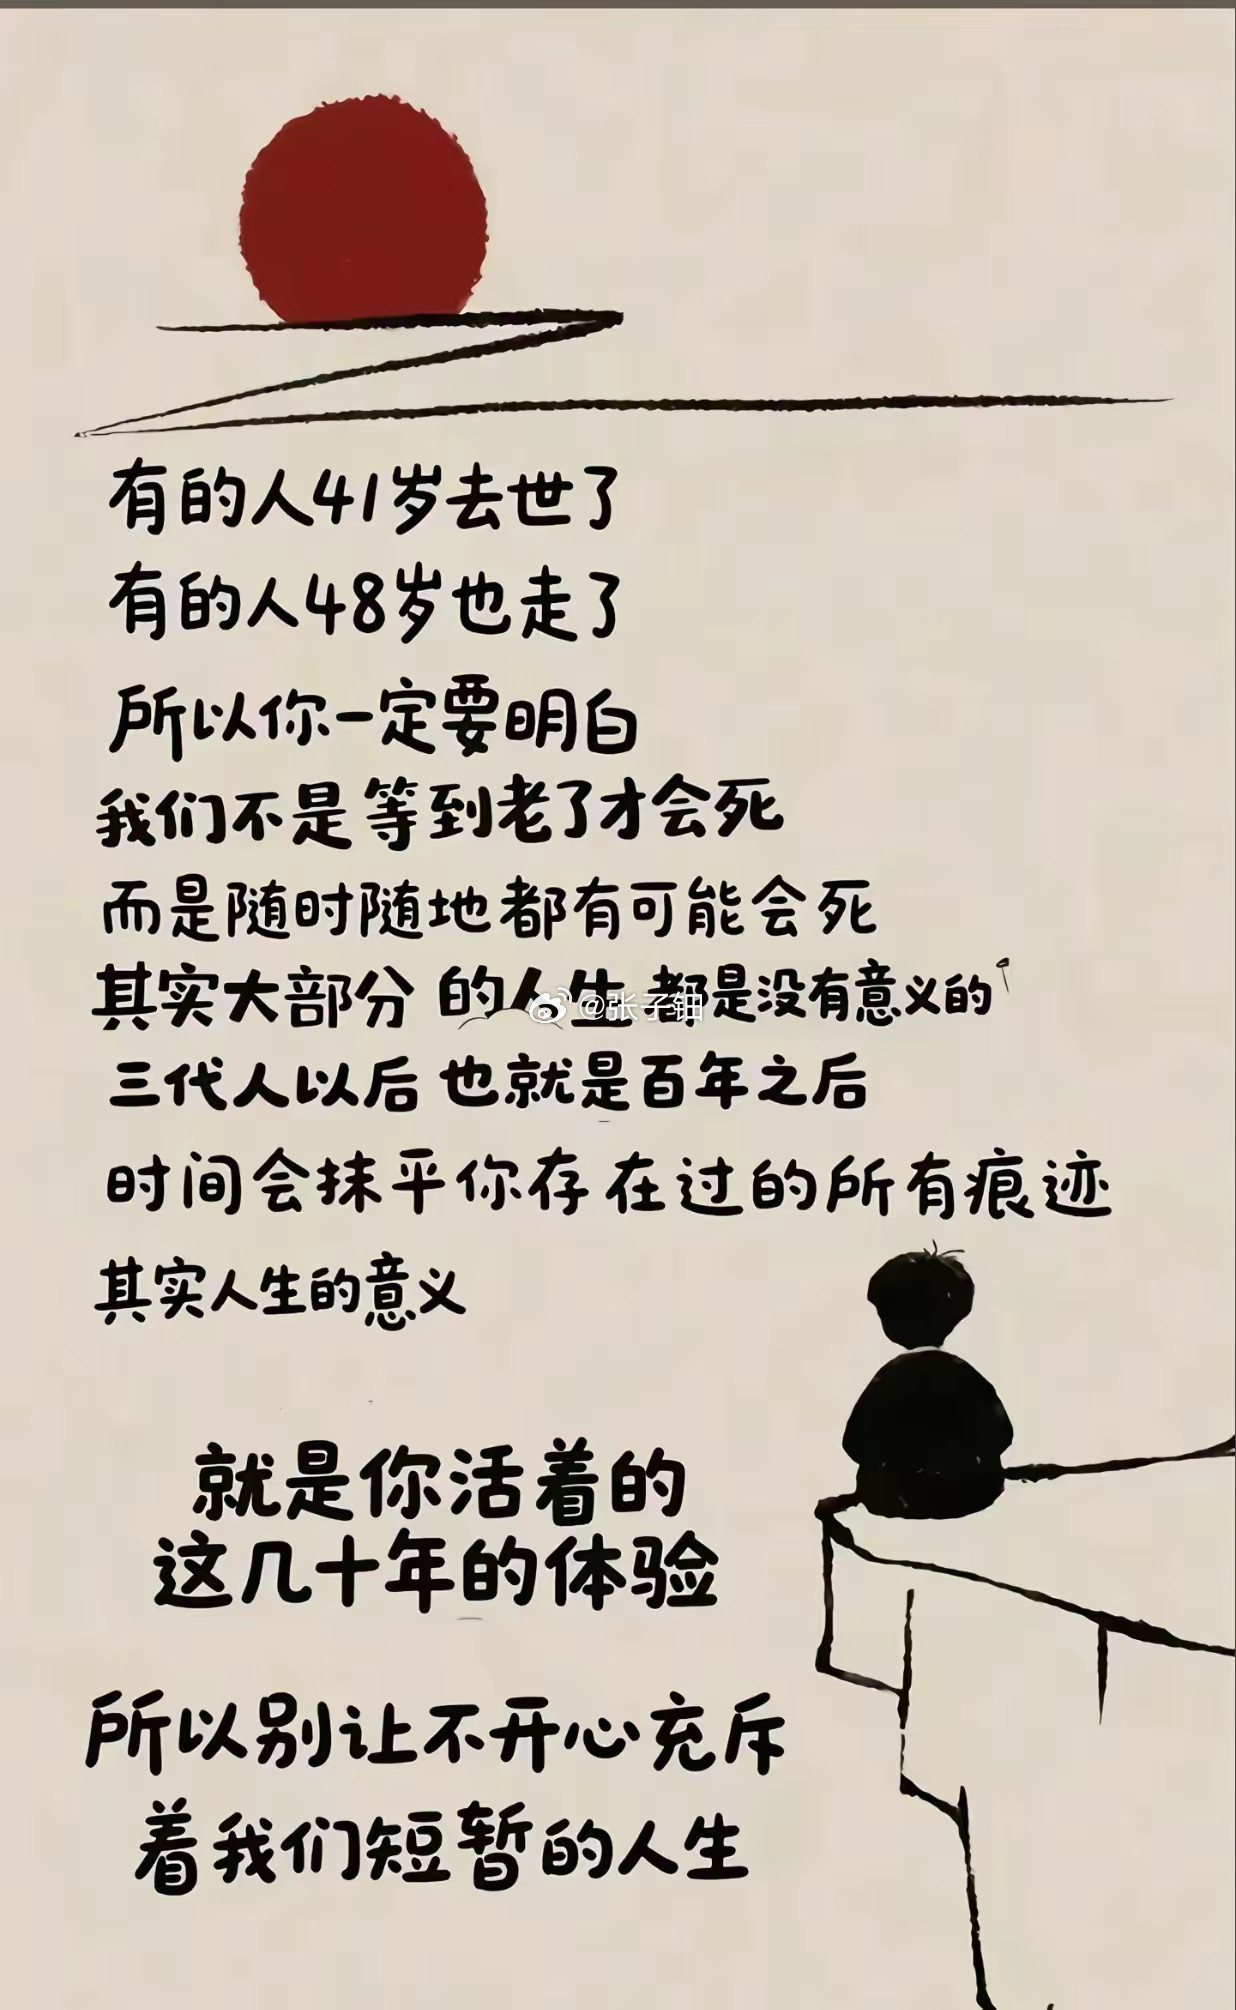 有的人41岁去世了
有的人48岁也走了
所以你一定要明白
我们不是等到老了才会死
而是随时随地都有可能会死
其实大部分的人生都是没有意义的
@张子轴
三代人以后也就是百年之后
时间会抹平你存在过的所有痕迹
其实人生的意义
就是你活着的
这几十年的体验
所以别让不开心充斥
着我们短暂的人生